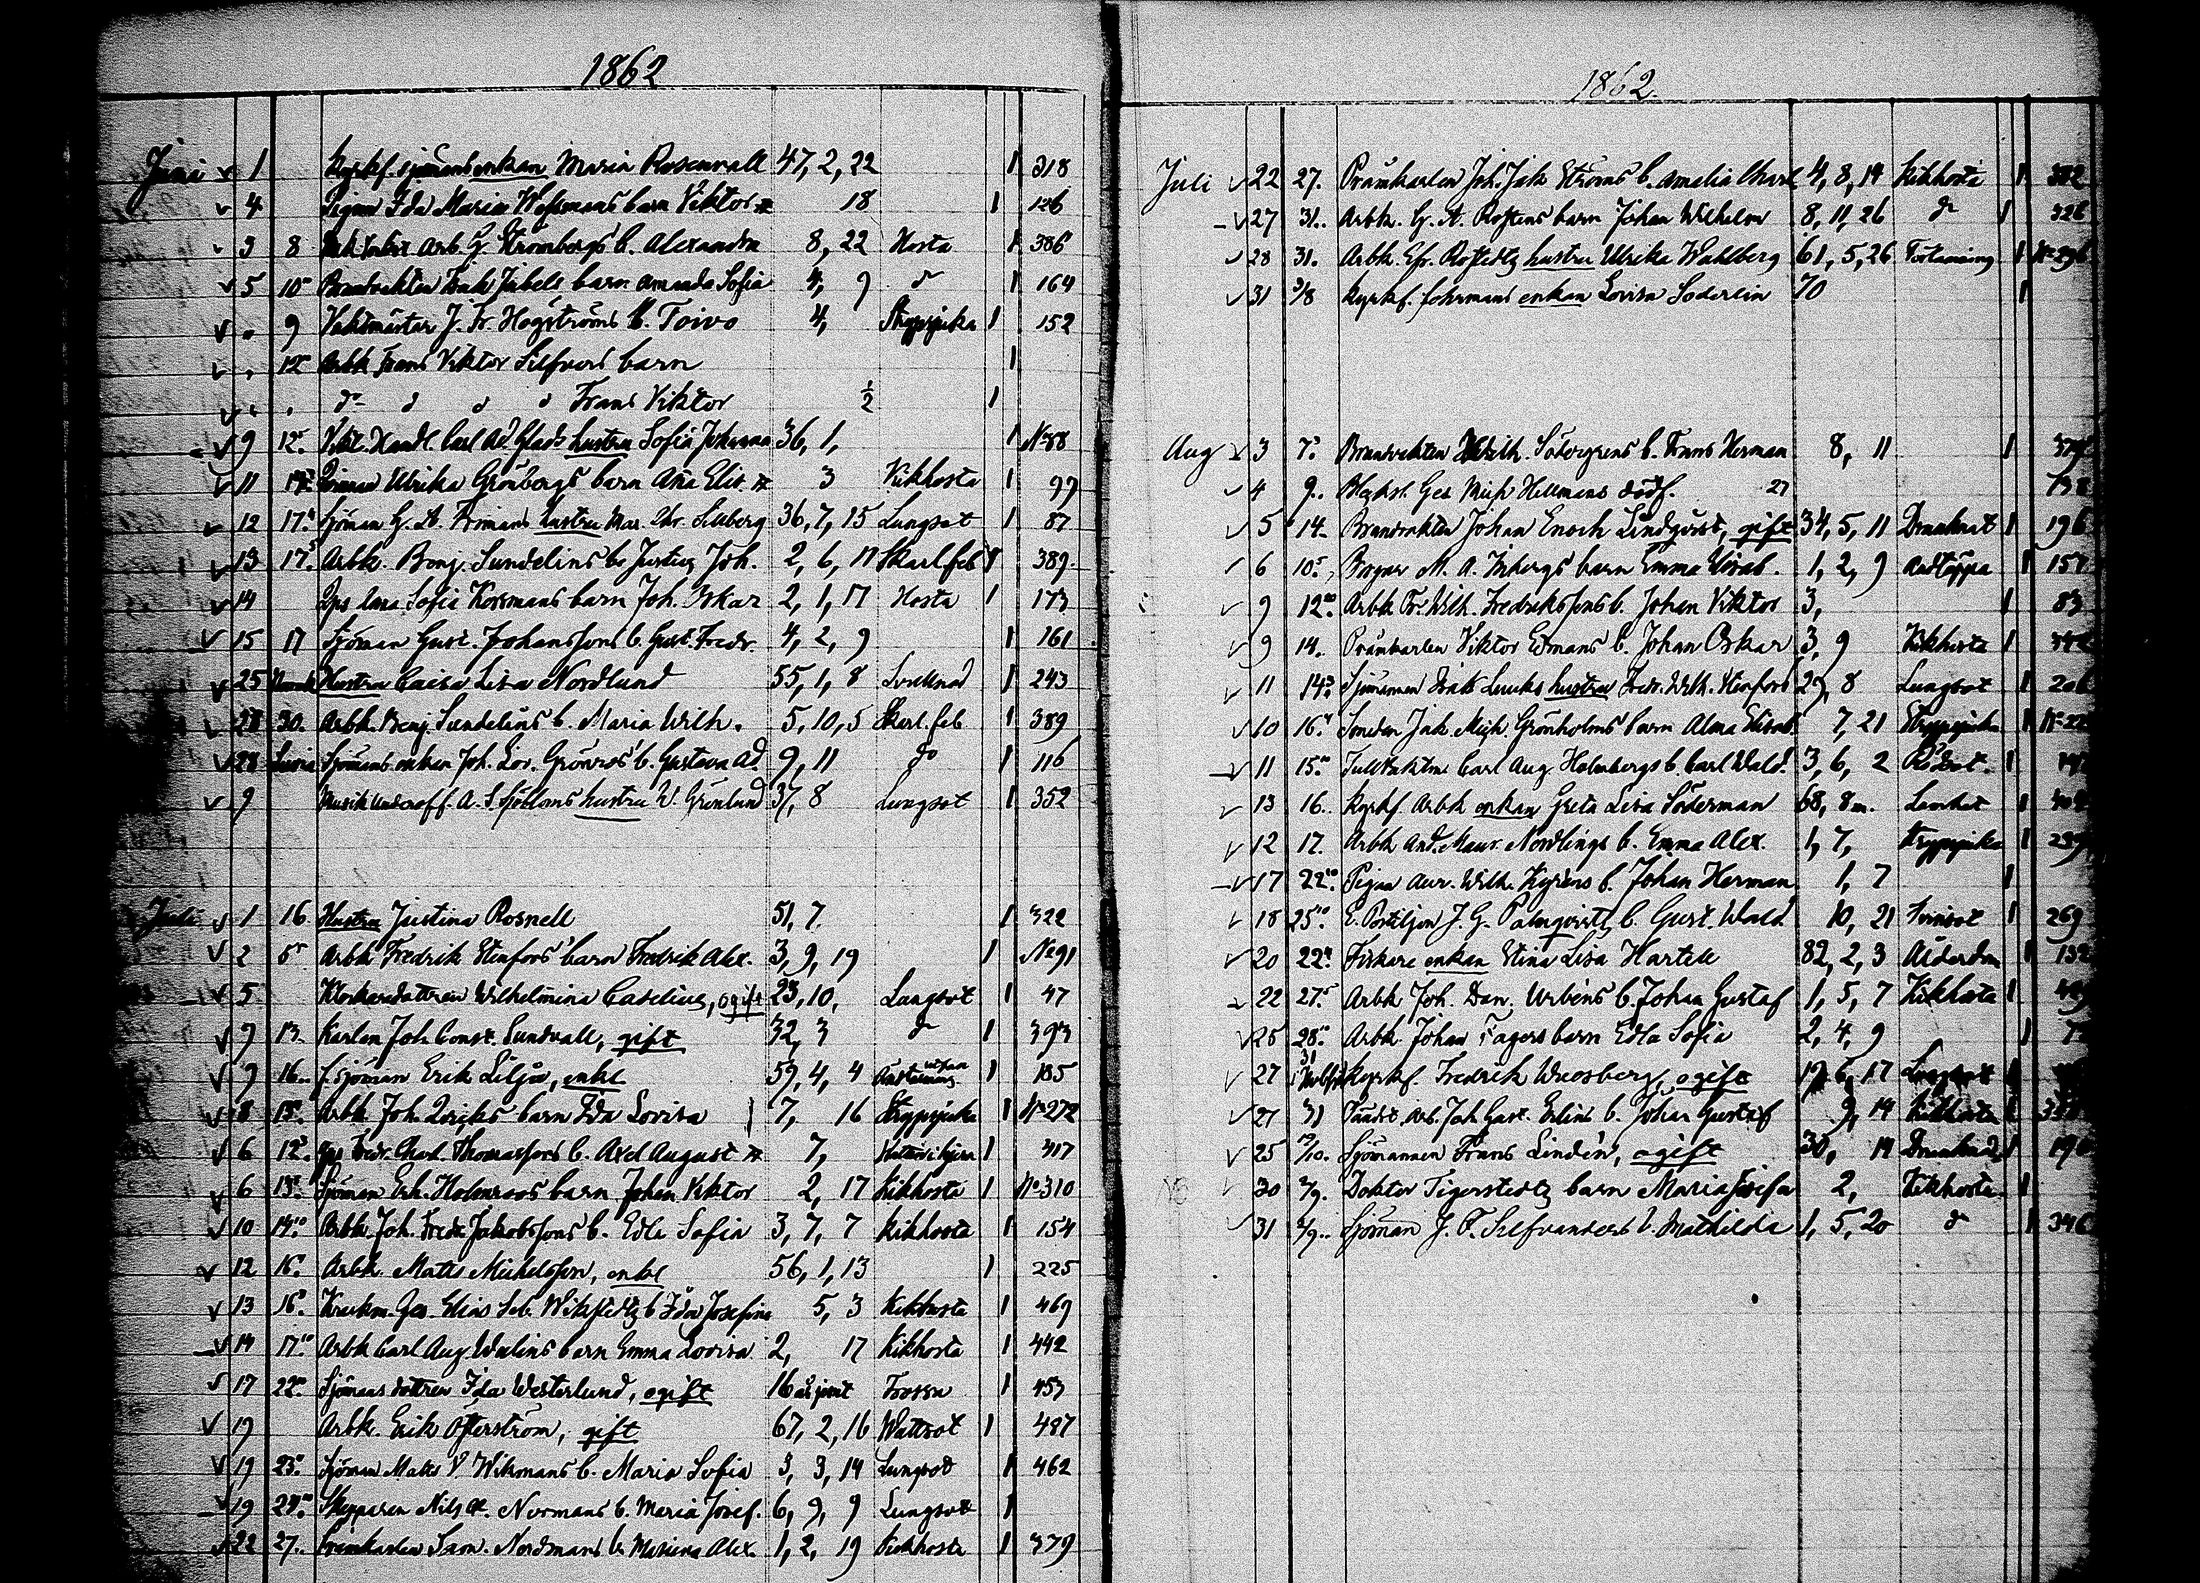 1862
Juni 1 Kyrkf. sjömans enkan Maria Rosenvall 47, 2, 22 318
4 Pigan Ida Maria Wessmans barn Viktor 18 126
3 8 Arb. G. Strömbergs b. Alexandra 8, 22 Hosta 386
5 10 Brandvakten Isaks barn Amanda Sofia 4, 9 do 164
" 9 Vaktmästar J. Fr. Högströms b. Toivo 4, Strypsjuka 152
" 12 Arbk Frans Viktor Silfvers barn
" " do do do do Frans Viktor 1/2
9 12 Handl. Carl Ad. Glads hustru Sofia Johanna 36, 1, No 88
11 Ulrika Grönbergs barn Ana Elis. 3 Kikhosta 99
12 17 Sjöman G. A. Fromans hustru Mar. Chr. Selberg 36, 7, 15 Lungsot 87
13 17 Arbk. Benj. Sundelins b. Justus Joh. 2, 6, 17 Skarl.feb 389
14 Sofia Korsmans barn Joh. Oskar 2, 1, 17 Hosta 173
15 17 Sjöman Gust. Johanssons b. Gust. Fredr. 4, 2, 9 161
25 Hustru Caisa Lisa Nordlund 55, 1, 8 243
28 30. Arbk. Benj. Sundelins b. Maria Wilh. 5, 10, 5 Skarl. feb 389
28 Sjömans enkan Joh. Lov. Grönros b. Gustava Ad. 9, 11 do 116
9 Musik underoff. A. S. Sjöbloms hustru W. Grönlund 37, 8 Lungsot 352
Juli 1 16 Hustru Justina Rosnell 51, 7. 322
2 5 Arbk Fredrik Stenfors barn Fredrik Alex. 3, 9, 19 No 91
5 Klockaredottren Wilhelmina Caselius, ogift 23, 10, Lungsot 47
9 13. Karlen Joh. Const. Sundvall, gift 32, 3 do 393
9 16 f. sjöman Erik Lilja, enkl 59, 4, 4 185
8 13 Arbk. Joh. barn Ida Lovisa 7, 16 Strypsjuka No 272
6 12 Fredr. Charl. Thomassons b. Axel August 7, 417
6 13 Sjöman Erh. Holmroos barn Johan Viktor 2, 17 Kikhosta No 310
10 14 Arbk. Joh. Fredr. Jakobssons b. Edla Sofia 3, 7, 7 Kikhosta 154
12 16 Arbk. Matts Michelsson, enkl 56, 1, 13 225
13 16 Elias Seb. Wikstedts b. Ida Josefina 5, 3 Kikhosta 469
14 17 Arbk Carl Aug. Welins barn Emma Lovisa 2, 17 Kikhosta 442
17 22 Sjömans dottren Ida Westerlund, ogift 16 år jemt Frossa 453
19 Arbk. Erik Österström, gift 67, 2, 16 Wattsot 487
19 23 Sjöman Matts V. Wikmans b. Maria Sofia 3, 3, 14 Lungsot 462
19 24 Skepparen Nils A. Normans b. Maria Josef. 6, 9, 9 Lungsot
22 27. Pråmkarlen Sam. Nordmans b. Alex. 1, 2, 19 Kikhosta 379
1862.
Juli 22 27. Pråmkarlen Joh. Jak Ströms b. Amalia Charl 4, 8, 14 Kikhosta 382
27 31. Arbk. G. A. Rostens barn Johan Wilhelm 8, 11, 26 do 326
28 31. Arbk. Efr. Rostedts hustru Ulrika Wahlberg 61, 5, 26 No 396
31 3/8 Kyrkf. fohrmans enkan Lovisa Söderlin 70
Aug 3 7 Brandvakten Wilh. Södergrens b. Frans Herman 8, 11
4 9. Mich Hellmans dödf. 27
5 14 Brandvakten Johan Enoch Lindqvist, gift 34, 5, 11 Drunknat 196
6 10 Borgar M. A. Inbergs barn Emma Elisab. 1, 2, 9 Andtäppa 157
9 12 Arbk Fr. Wilh. Fredrikssons b. Johan Viktor 3, 83
9 14. Pråmkarlen Viktor Edmans b. Johan Oskar 3, 9 Kikhosta
11 14 Sjömannen hustru Fredr. Wilh. Stenfors 29, 8 Lungsot 206
10 16 Jak. Mich. Grönholms barn Alma Elisab. 7, 21 Strypsjuka No 22
11 15 Carl Aug. Holmbergs b. Carl Wald. 3, 6, 2 Rödsot.
13 16. Kyrkf. Arbk enkan Greta Lisa Söderman 68, 8 m.
12 17. Arbk And. Maur. Nordlings b. Emma Alex. 1, 7, Strypsjuka
17 22 Pigan Aur. Wilh. Kyréns b. Johan Herman 1, 7
18 25 E. Postiljon J. G. Palmqvists b. Gust. Wald. 10, 21 269
20 22 Fiskare enkan Stina Lisa Hartell 82, 2, 3 Ålderdom 132
22 27 Arbk Joh. Dan. Urbéns b. Johan Gustaf 1, 5, 7 Kikhosta
25 28 Arbk. Johan Fagers barn Edla Sofia 2, 4, 9
27 31 Kyrkf. Fredrik Wreosberg, ogift 17
27 31 Arb. Joh Gust. Erlins b. Johan Gustaf 9, 14 Kikhosta
25 Sjömannen Frans Lindén, ogift 30, 14 190
30 2/9. Doktor Tigerstedts barn Maria Josefa 2, Kikhosta
31 2/9. Sjöman J. F. Silfvanders b. Mathilda 1, 5, 20 do 346